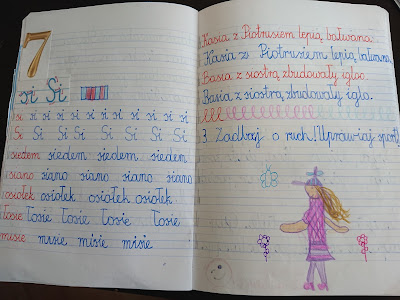 7
si Si
si si si si si si si si si si
Si Si Si Si Si Si Si
siedem siedem siedem siedem
siano siano siano siano siano
osiołek osiołek osiołek osiołek
łosie łosie łosie łosie łosie
misie misie misie misie
Kasia z Piotrusiem lepią bałwana.
Kasia z Piotrusiem lepią bałwana.
Basia z siostrą zbudowały igloo.
Basia z siostrą zbudowały iglo.
3. Zadbaj o ruch! Uprawiaj sport!